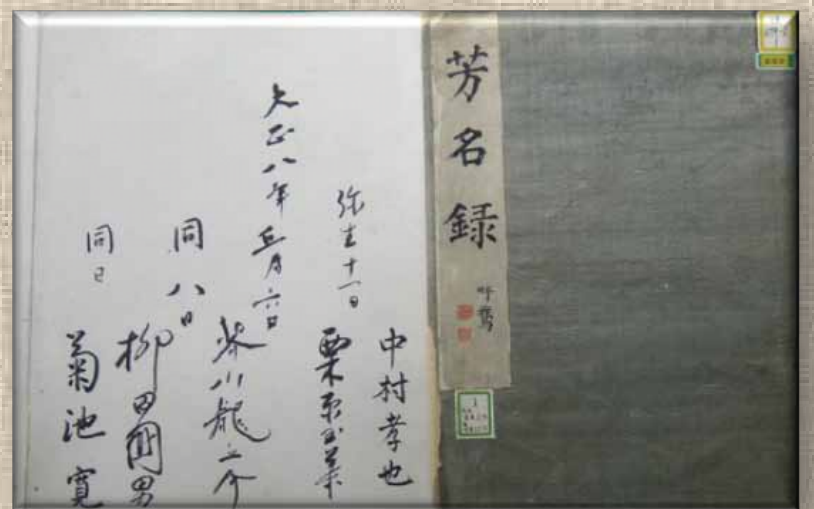 芳名録
吽鶩
中村孝也
弥生十一日
栗原玉葉
大正八年五月六日
芥川龍之介
同八日
柳田國男
同日
菊池寛